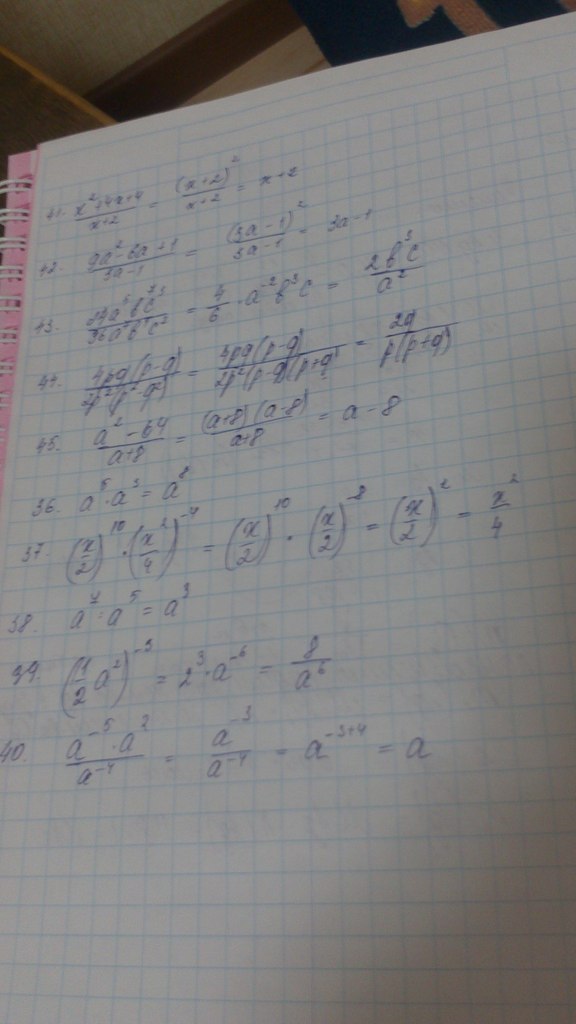 41. \frac{x^2+4x+4}{x+2} = \frac{(x+2)^2}{x+2} = x+2
42. \frac{9a^2-6a+1}{3a-1} = \frac{(3a-1)^2}{3a-1} = 3a-1
43. = \frac{4}{6} \cdot a^{-2}b^3c = \frac{2b^3c}{a^2}
44. \frac{4pq(p-q)}{2p^2(p^2-q^2)} = \frac{4pq(p-q)}{2p^2(p-q)(p+q)} = \frac{2q}{p(p+q)}
45. \frac{a^2-64}{a+8} = \frac{(a+8)(a-8)}{a+8} = a-8
36. a^5 \cdot a^3 = a^8
37. (\frac{x}{2})^{10} \cdot (\frac{x^2}{4})^{-4} = (\frac{x}{2})^{10} \cdot (\frac{x}{2})^{-8} = (\frac{x}{2})^2 = \frac{x^2}{4}
38. a^7 : a^5 = a^3
39. (\frac{1}{2}a^2)^{-3} = 2^3 \cdot a^{-6} = \frac{8}{a^6}
40. \frac{a^{-5} \cdot a^2}{a^{-4}} = \frac{a^{-3}}{a^{-4}} = a^{-3+4} = a